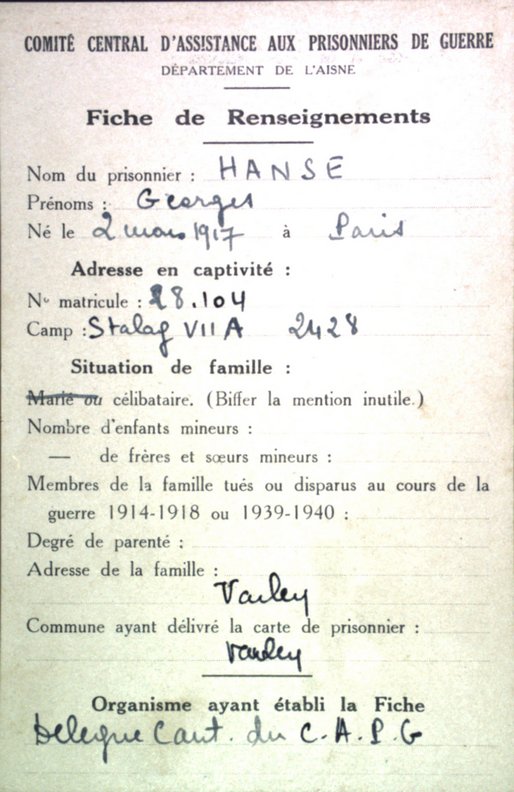 COMITÉ CENTRAL D'ASSISTANCE AUX PRISONNIERS DE GUERRE
DÉPARTEMENT DE L'AISNE
Fiche de Renseignements
Nom du prisonnier : HANSE
Prénoms : Georges
Né le 2 mars 1917 à Paris
Adresse en captivité :
No matricule : 28.104
Camp : Stalag VII A 2428
Situation de famille :
Marié ou célibataire. (Biffer la mention inutile.)
Nombre d'enfants mineurs :
— de frères et sœurs mineurs :
Membres de la famille tués ou disparus au cours de la
guerre 1914-1918 ou 1939-1940 :
Degré de parenté :
Adresse de la famille :
Commune ayant délivré la carte de prisonnier :
Organisme ayant établi la Fiche
Délégué Cant. du C.A.P.G